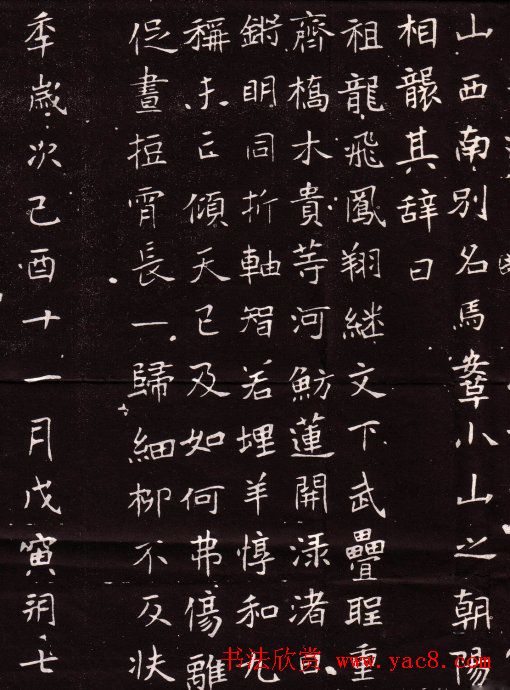 山西南別名馬鞌小山之朝陽
相襲其辞曰
祖龍飛鳳翔継文下武疊聖重
齊橋木貴等河魴蓮開淥渚日
鏘明同折軸智若埋羊惇和九
稱亡傾天已及如何弗傷離
促晝短宵長一歸細柳不反扶
季歲次己酉十一月戊寅朔七
书法欣赏 www.yac8.com